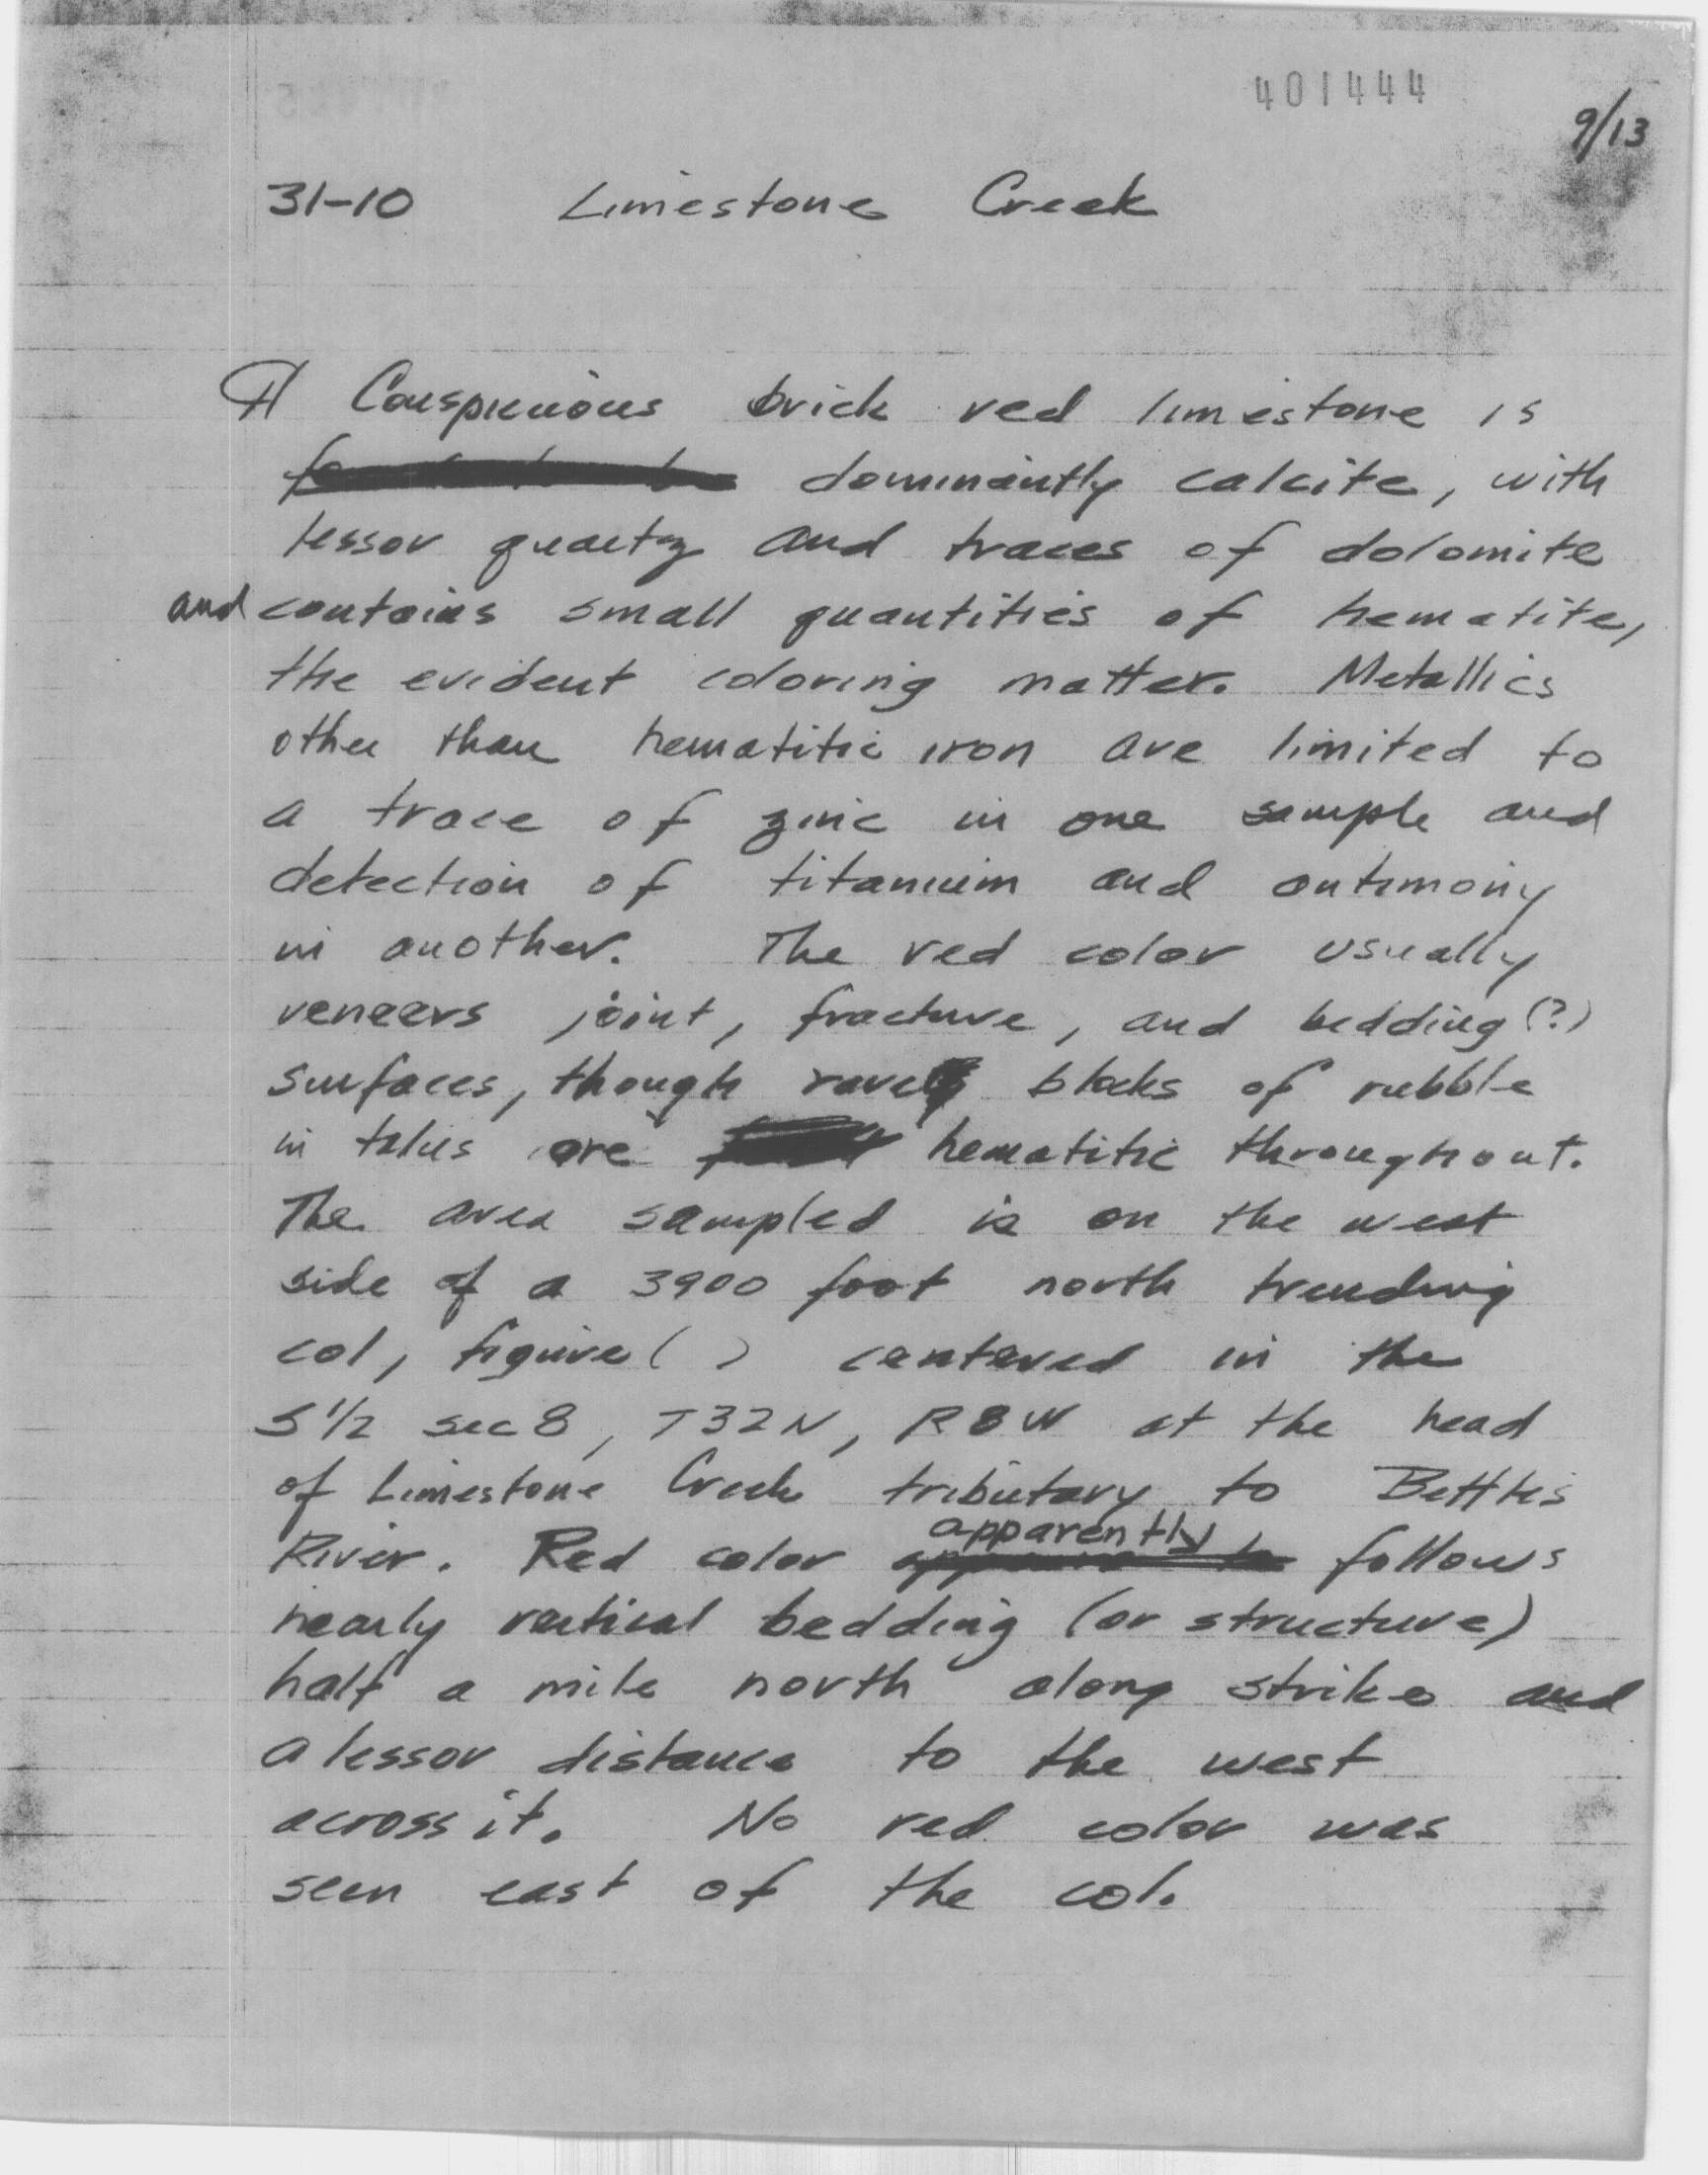 401444
9/13
31-10 Limestone Creek
¶ Conspicuous brick red limestone is
dominantly calcite, with
lessor quartz and traces of dolomite
and contains small quantities of hematite,
the evident coloring matter. Metallics
other than hematitic iron are limited to
a trace of zinc in one sample and
detection of titanium and antimony
in another. The red color usually
veneers joint, fracture, and bedding (?)
surfaces, though rare blocks of rubble
in talus are hematitic throughout.
The area sampled is on the west
side of a 3900 foot north trending
col, figure ( ) centered in the
S 1/2 sec 8, T32N, R8W at the head
of Limestone Creek tributary to Bettles
River. Red color apparently follows
nearly vertical bedding (or structure)
half a mile north along strike and
a lessor distance to the west
across it. No red color was
seen east of the col.